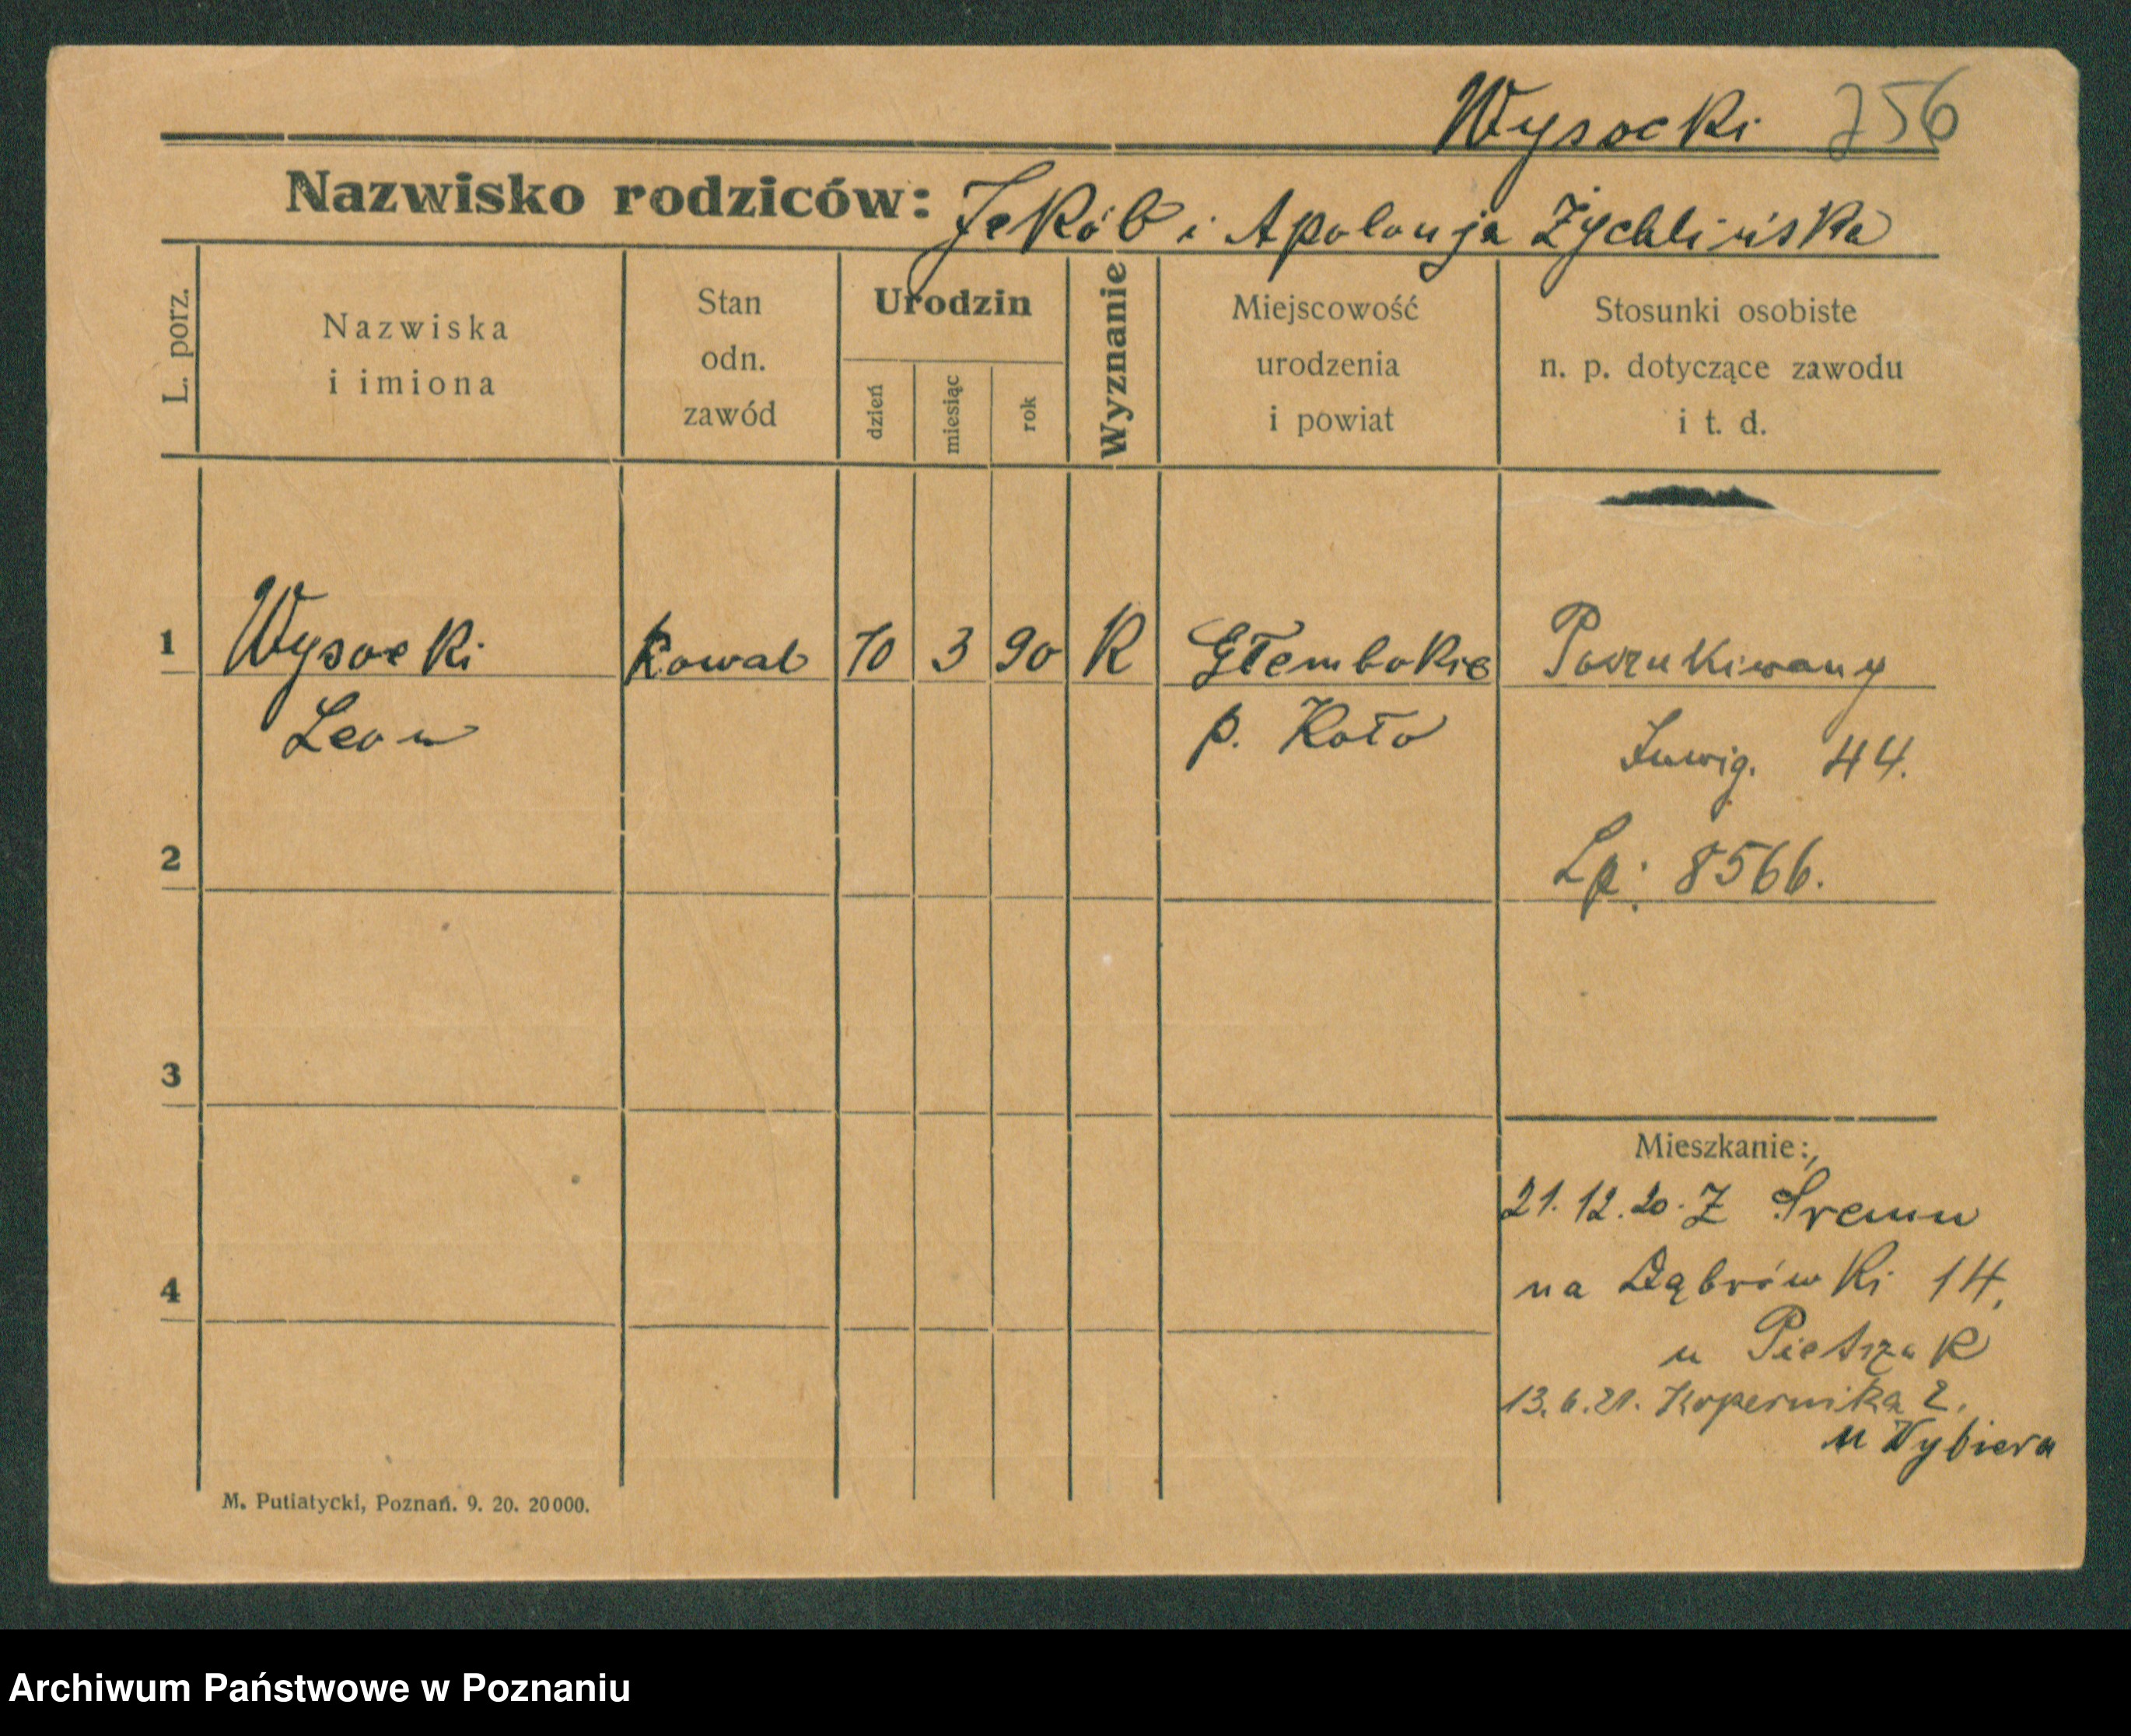 Wysocki 256
Nazwisko rodziców: Jakób i Apolonja Żychlińska
L. porz.
Nazwiska i imiona
Stan odn. zawód
Urodzin
dzień
miesiąc
rok
Wyznanie
Miejscowość urodzenia i powiat
Stosunki osobiste n. p. dotyczące zawodu i t. d.
1 Wysocki Kowal 10 3 90 K Głembokie Poszukiwany
Leon p. Koło
44.
2 Lp: 8566.
3
Mieszkanie:
21.12.20. Z Śremu
4 na Dąbrówki 14,
u Pietrzak
13.6.21. Kopernika 2.
u Wybiera
M. Putiatycki, Poznań. 9. 20. 20000.
Archiwum Państwowe w Poznaniu